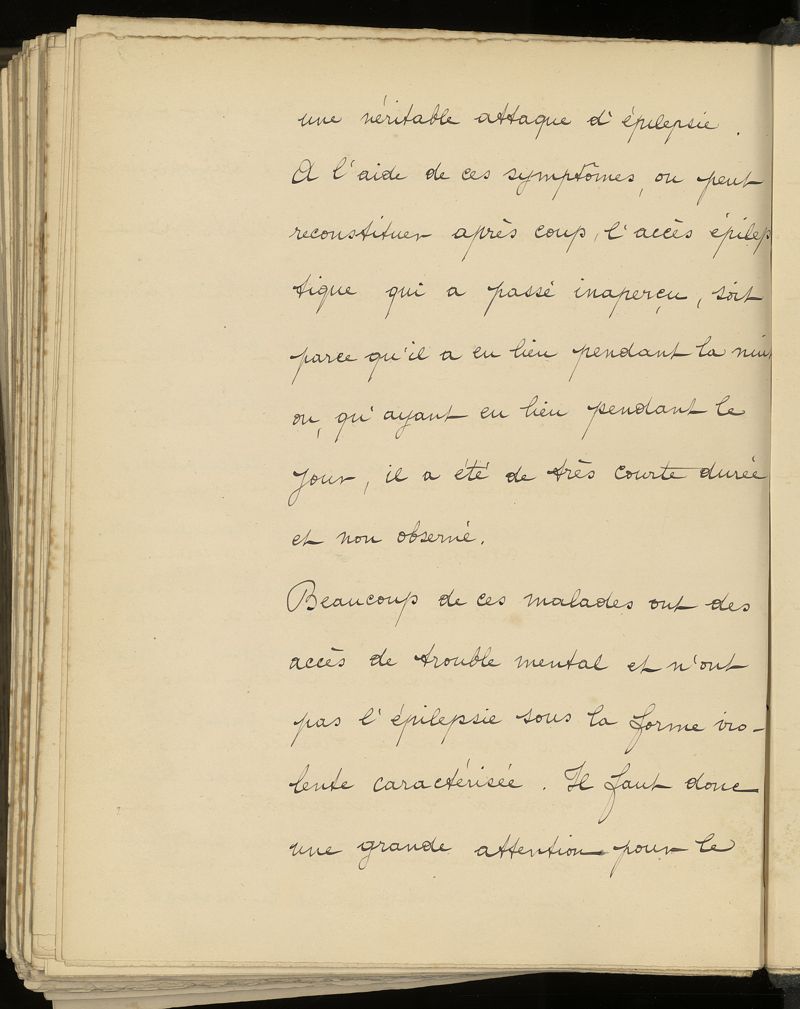 une véritable attaque d'épilepsie.
A l'aide de ces symptômes, on peut
reconstituer après coup, l'accès épilep
tique qui a passé inaperçu, soit
parce qu'il a eu lieu pendant la nuit
ou, qu'ayant eu lieu pendant le
jour, il a été de très courte durée
et non observé.
Beaucoup de ces malades ont des
accès de trouble mental et n'ont
pas l'épilepsie sous la forme vio-
lente caractérisée. Il faut donc
une grande attention pour le